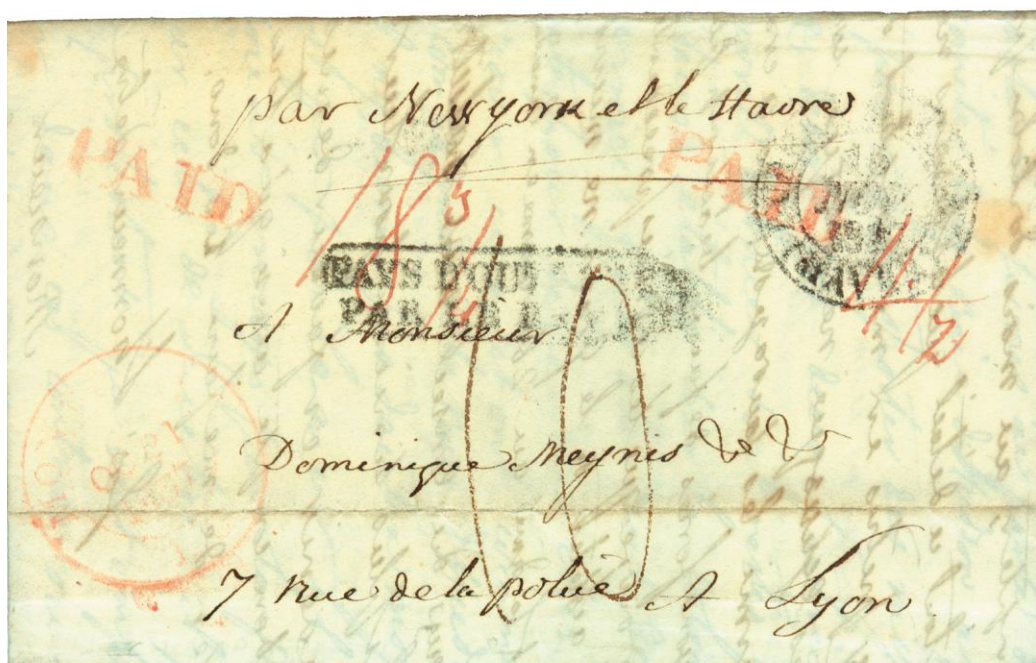 par New york et le Havre
PAID
PAID
18 3/4
4 1/2
PAYS D'OUT
PAR LE
A Monsieur
10
Dominique Meynis & &
7 Rue de la polise A Lyon